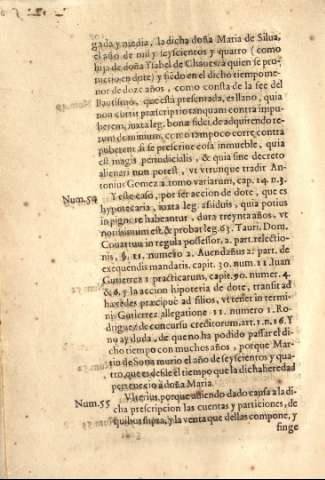 gada y media, la dicha doña Maria de Silua,
el año de mil y seyscientos y quatro (como
hija de doña Ysabel de Chaues, a quien se pro-
metio en dote) y siẽdo en el dicho tiempo me
nor de doze años, como consta de la fee del
Bautismo, que està presentada, es llano, quia
non currit præscriptio tanquam contra impu-
berem, iuxta leg. bonæ fidei de adquirendo re-
rum dominium, como tampoco corre contra
puberem si se prescriue cosa inmueble, quia
est magis periudicialis, & quia sine decreto
alienari non potest, vt vtrunque tradit An-
tonius Gomez 2. tomo variarum, cap. 14. n. 3.
Num. 54 Y este caso, por ser accion de dote, que es
hypotecaria, iuxta leg. assiduis, quia potius
in pignore habeantur, dura treynta años, vt
notissimum est, & probat leg. 63. Tauri. Dom.
Couarruu. in regula possessor, 2. part. relectio-
nis, §. 11. numero 2. Auendañus 2. part. de
exequendis mandatis. capit. 30. num. 11. Iuan
Gutierrez 1. practicarum, capit. 90. numer. 4.
& 6. y la accion hipoteria de dote, transit ad
hæredes præcipuè ad filios, vt tener in termi-
nis Gutierrez allegatione 11. numero 1. Ro-
driguez de concursu creditorum, art. 1. n. 16. Y
no ay duda, de que no ha podido passar el di-
cho tiempo con muchos años, porque Mar-
tin de Soria murio el año de seyscientos y qua-
tro, que es desde el tiempo que la dicha heredad
pertenecio à doña Maria.
Num. 55 Vlterius, porque auiendo dado causa a la di-
cha prescripcion las cuentas y particiones, de
quibus supra, y la venta que dellas compone, y
finge